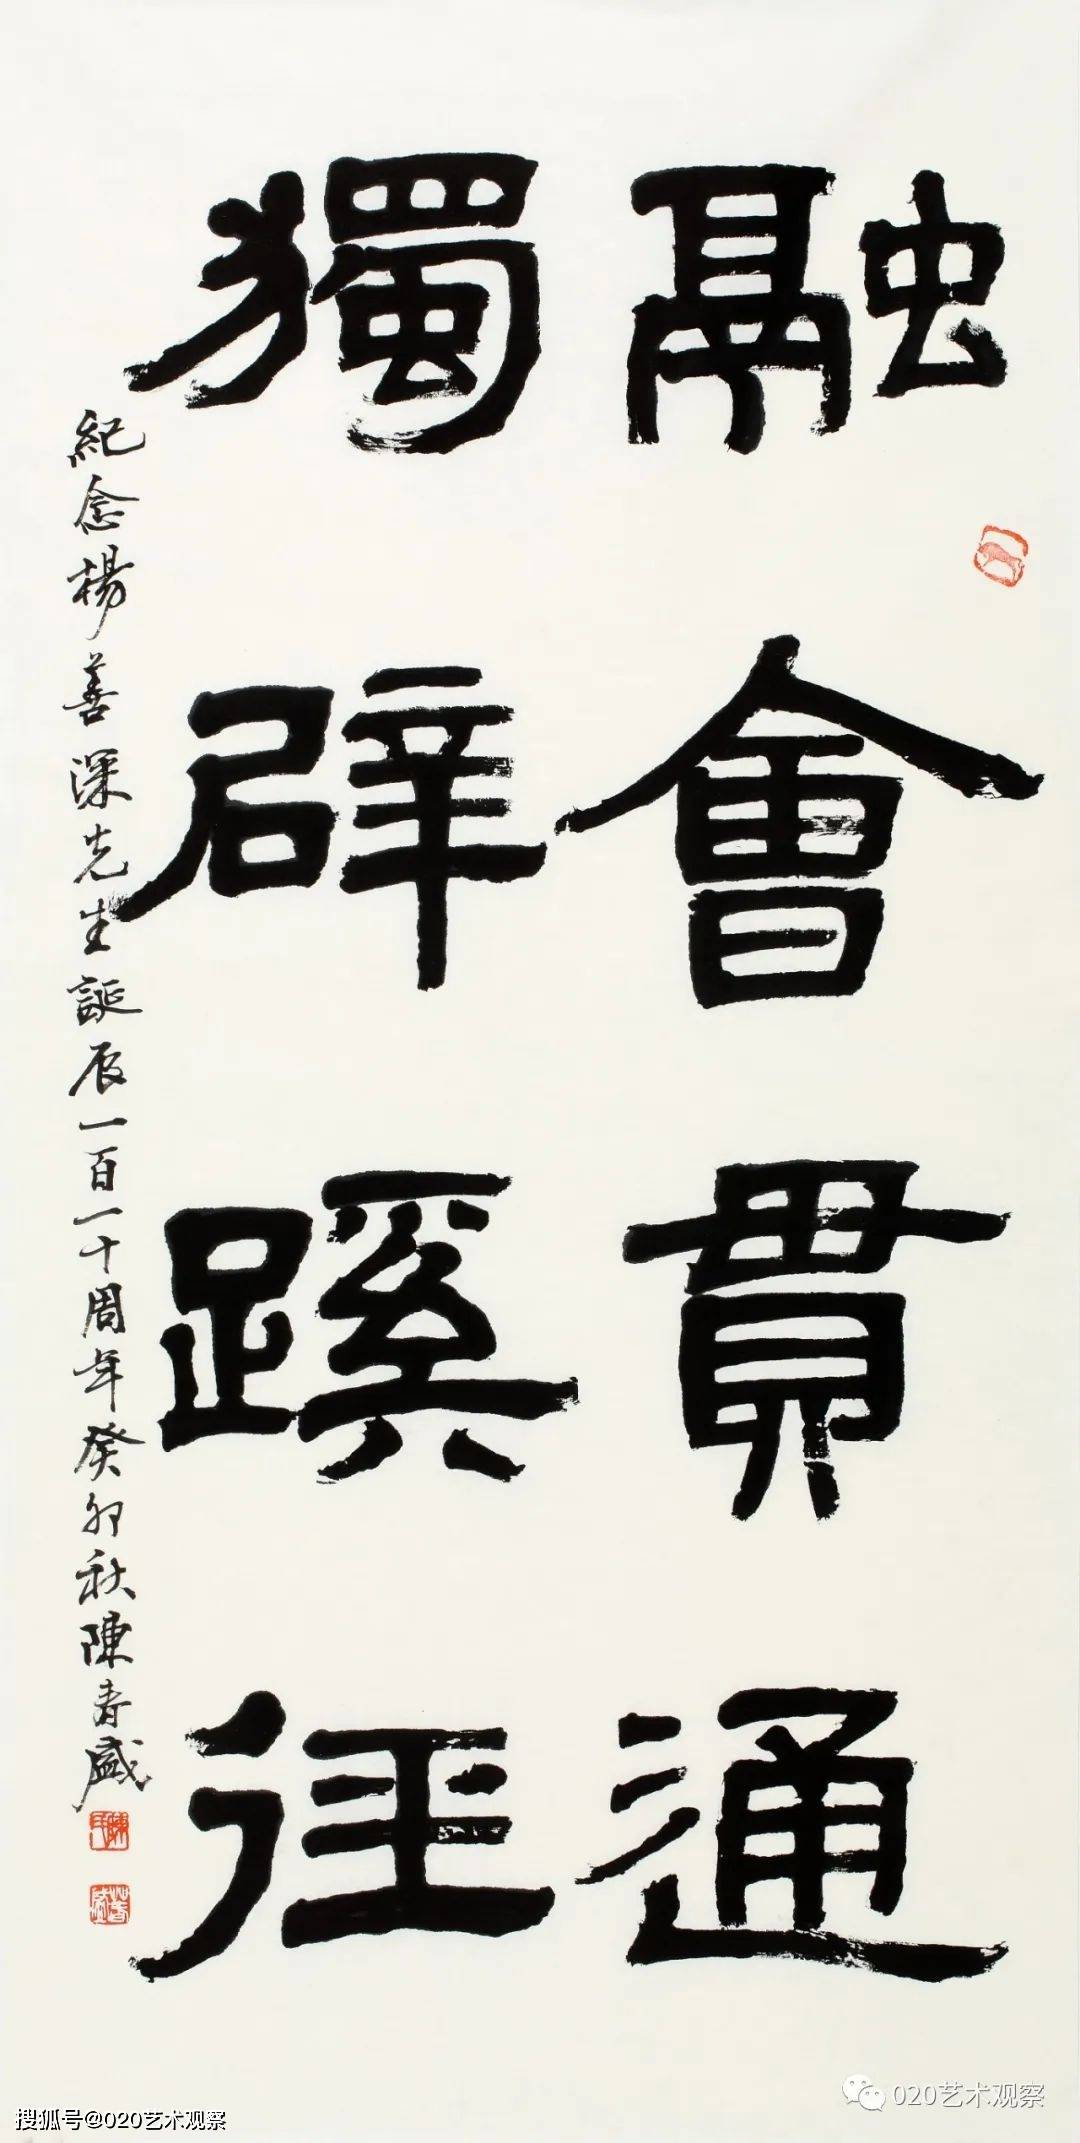 融會貫通
獨辟蹊徑
紀念楊善深先生誕辰一百一十周年癸卯秋陳春盛
020艺术观察
搜狐号@020艺术观察